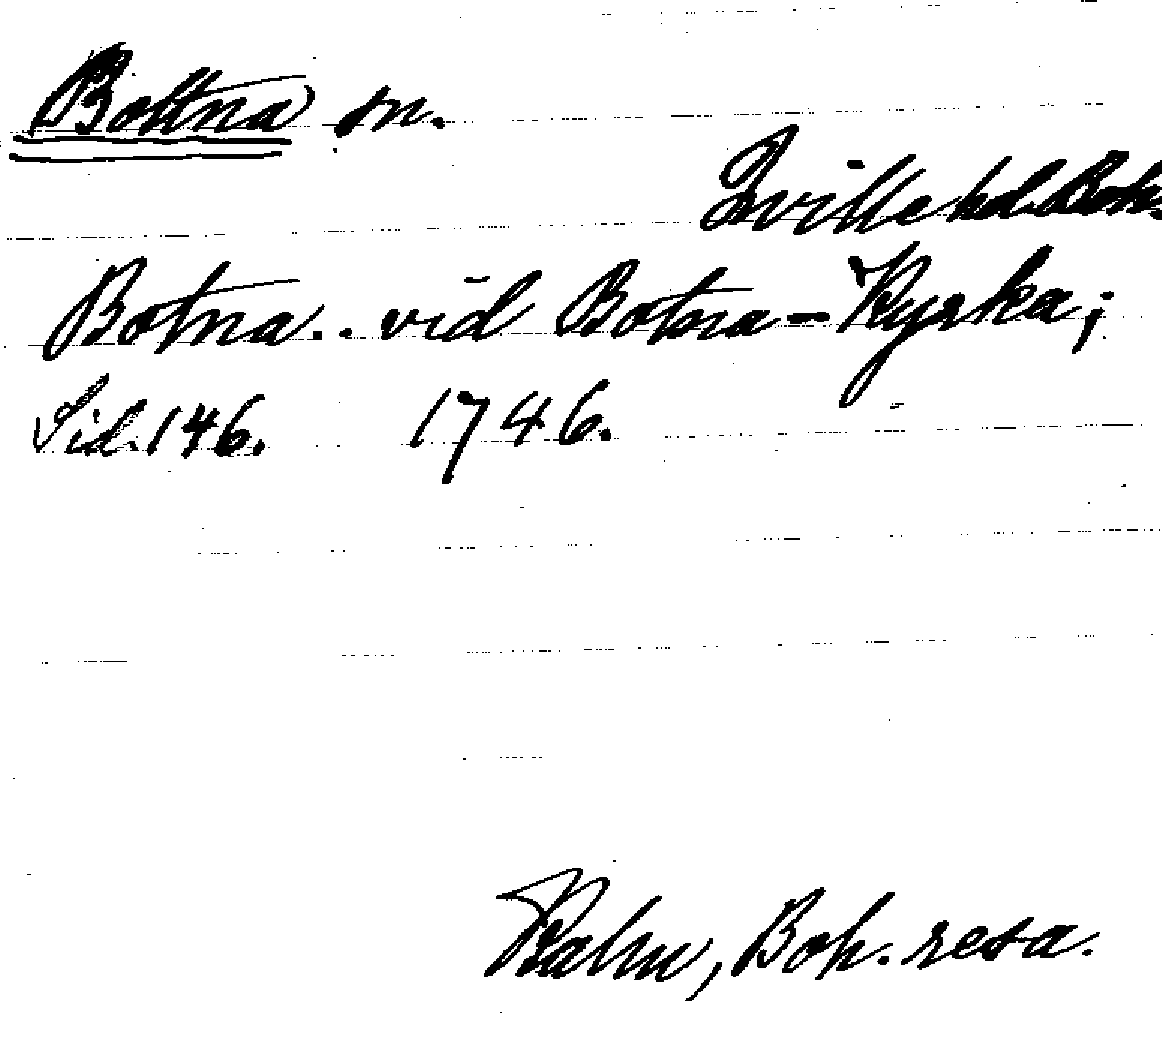 Bottna sn.
Qville hd. Boh.
Botna.. vid Botna-Kyrka;
Sid. 146. 1746.
Kalm, Boh. resa.